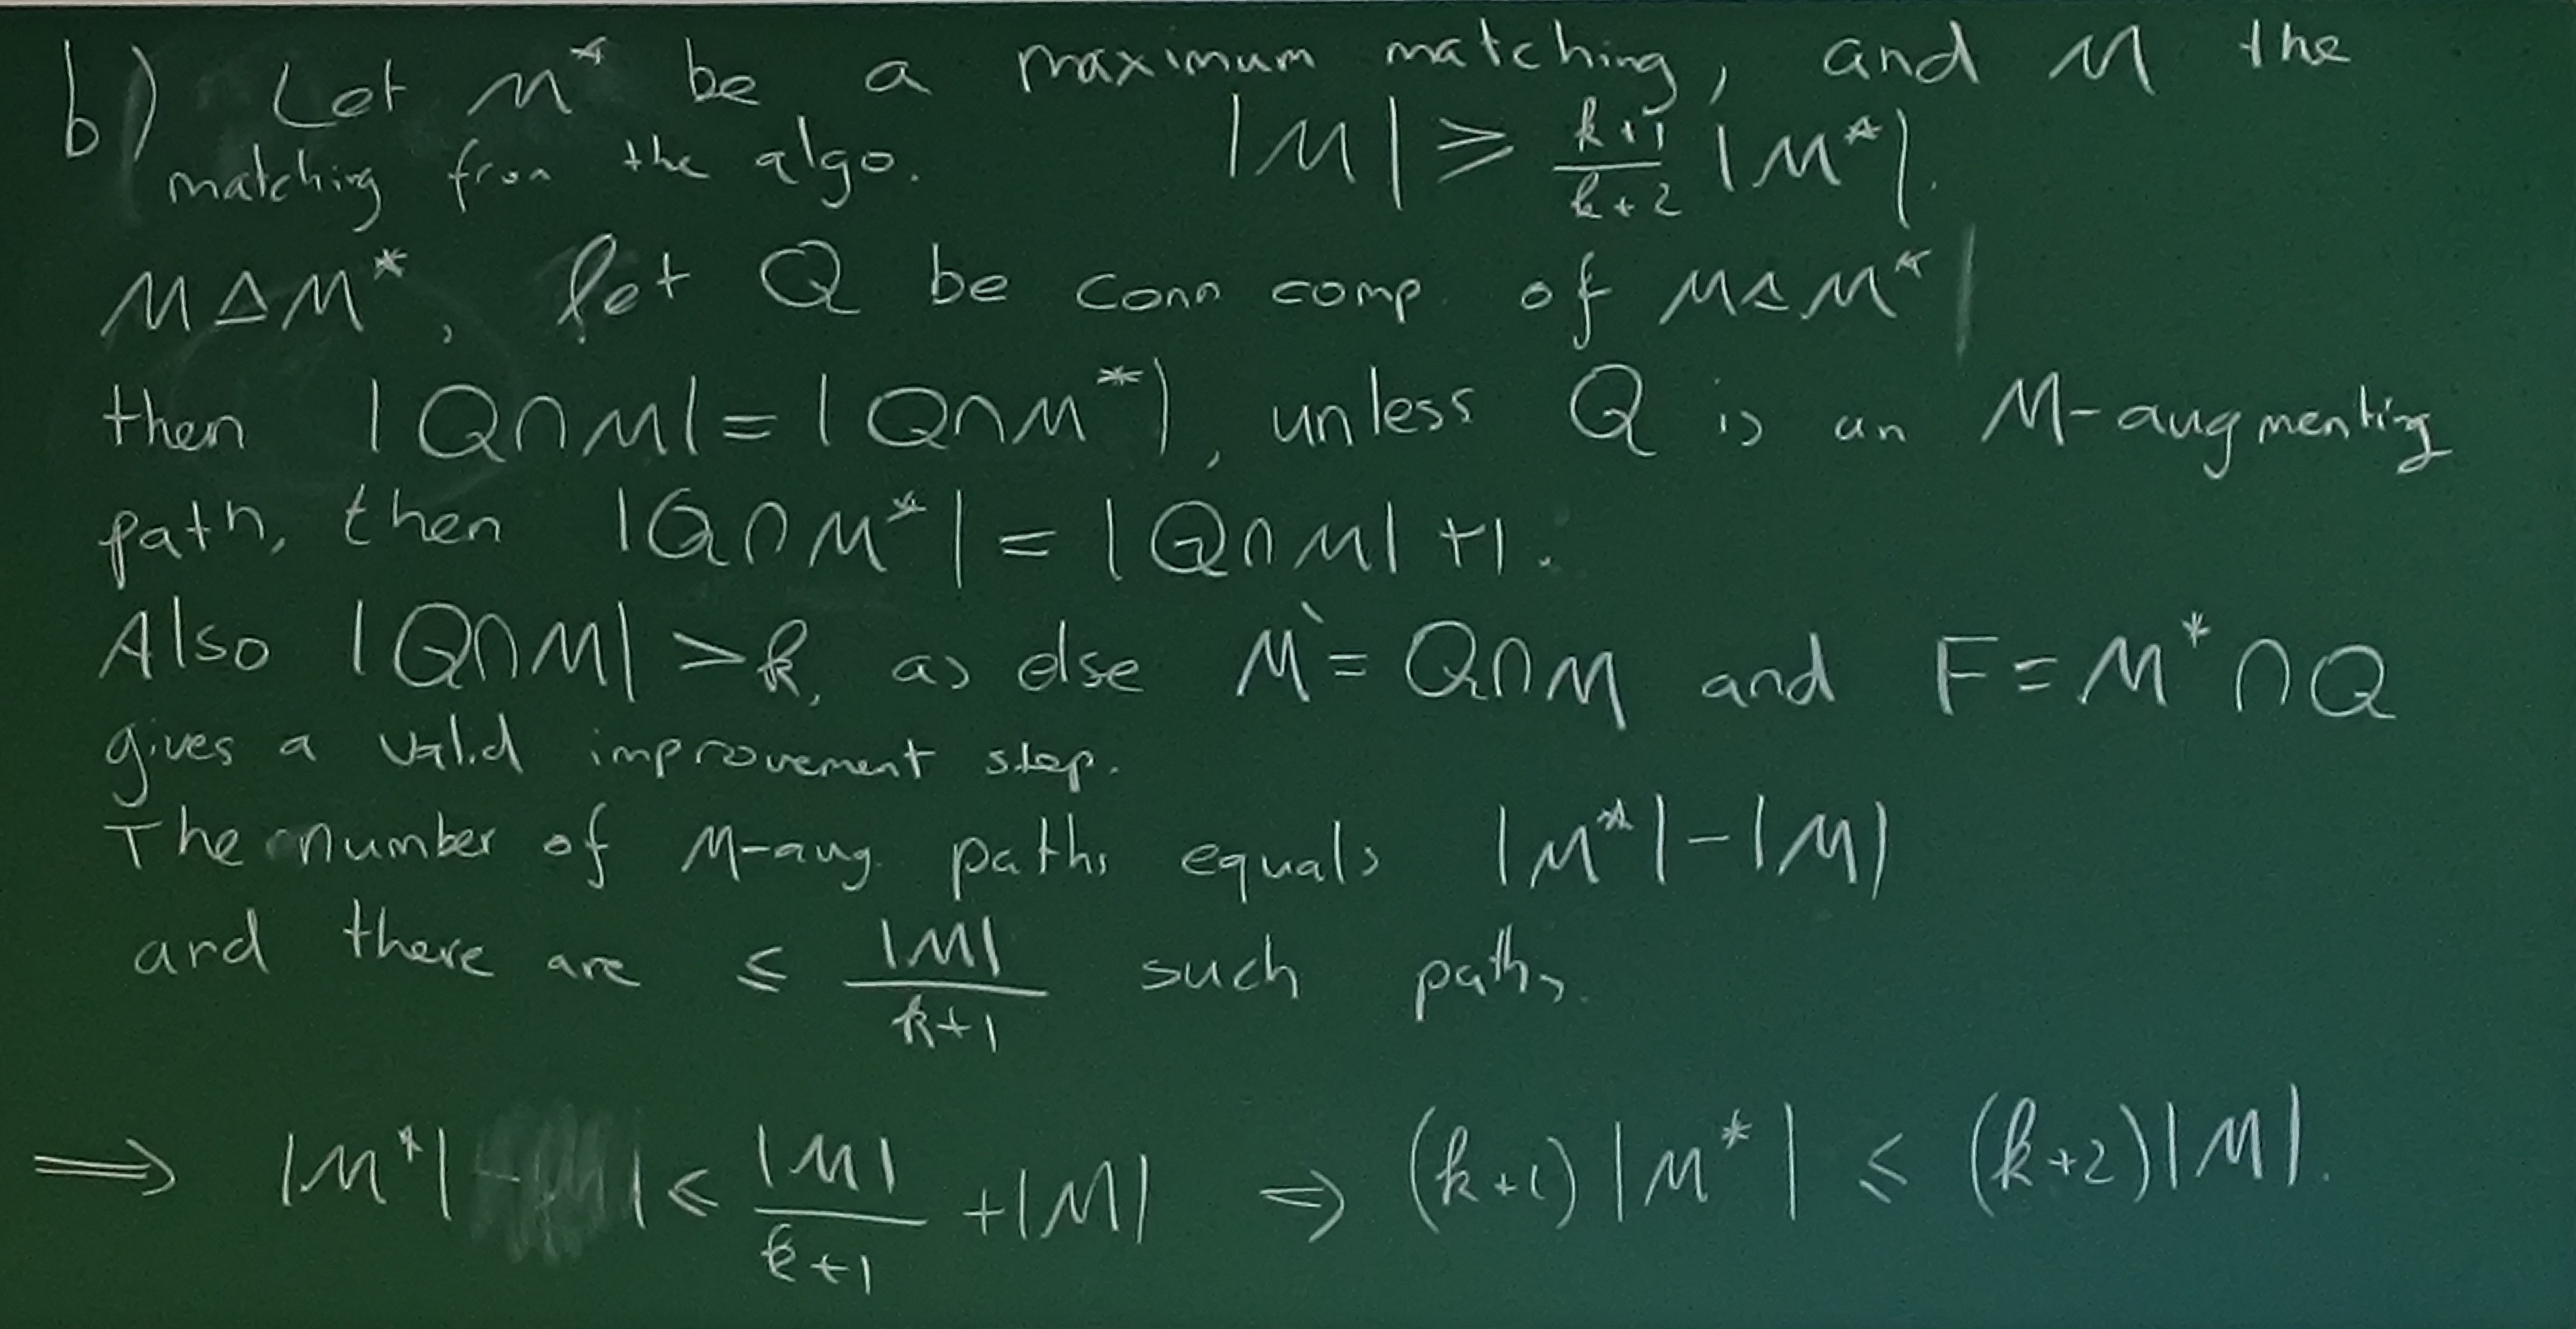 b) Let M* be a maximum matching, and M the
matching from the algo. |M| ≥ \frac{k+1}{k+2} |M*|.
M Δ M*, let Q be conn comp. of M Δ M*
then |Q∩M| = |Q∩M*|, unless Q is an M-augmenting
path, then |Q∩M*| = |Q∩M| +1.
Also |Q∩M| > k, as else M` = Q∩M and F = M*∩Q
gives a valid improvement step.
The number of M-aug. paths equals |M*| - |M|
and there are ≤ \frac{|M|}{k+1} such paths.
⟹ |M*| ≤ \frac{|M|}{k+1} + |M| ⇒ (k+1)|M*| ≤ (k+2)|M|.